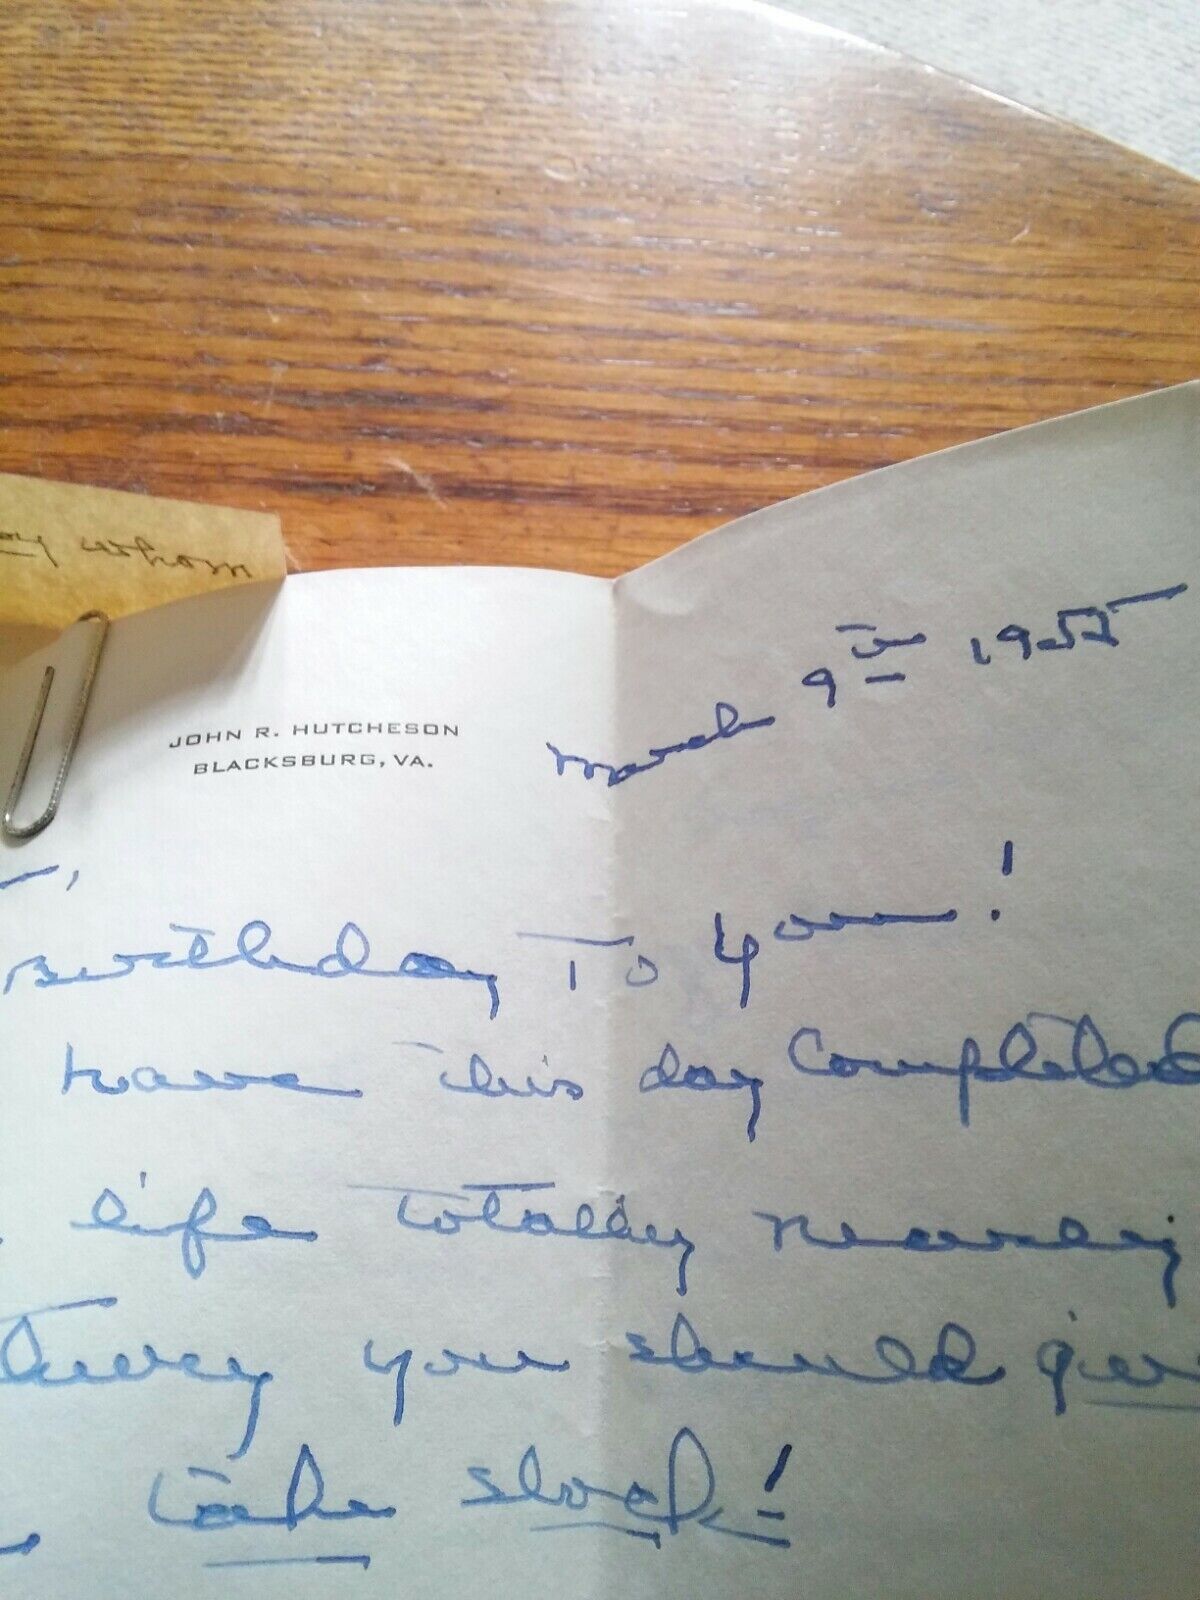 whom
JOHN R. HUTCHESON
BLACKSBURG, VA.
March 9th 1955
Birthday To you!
have this day Completed
life totally nearly
you should
take stock!